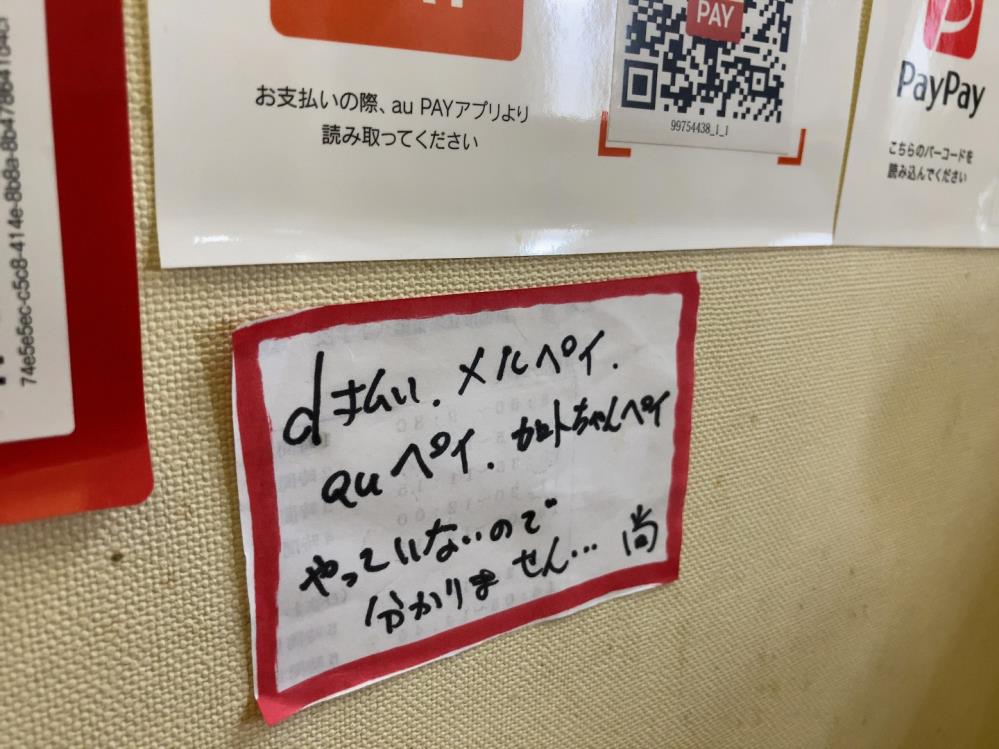 お支払いの際、au PAYアプリより
読み取ってください
PAY
99754438_1_1
PayPay
こちらのバーコードを
読み込んでください
d払い.メルペイ.
auペイ.カトちゃんペイ
やっていないので
分かりません… 尚